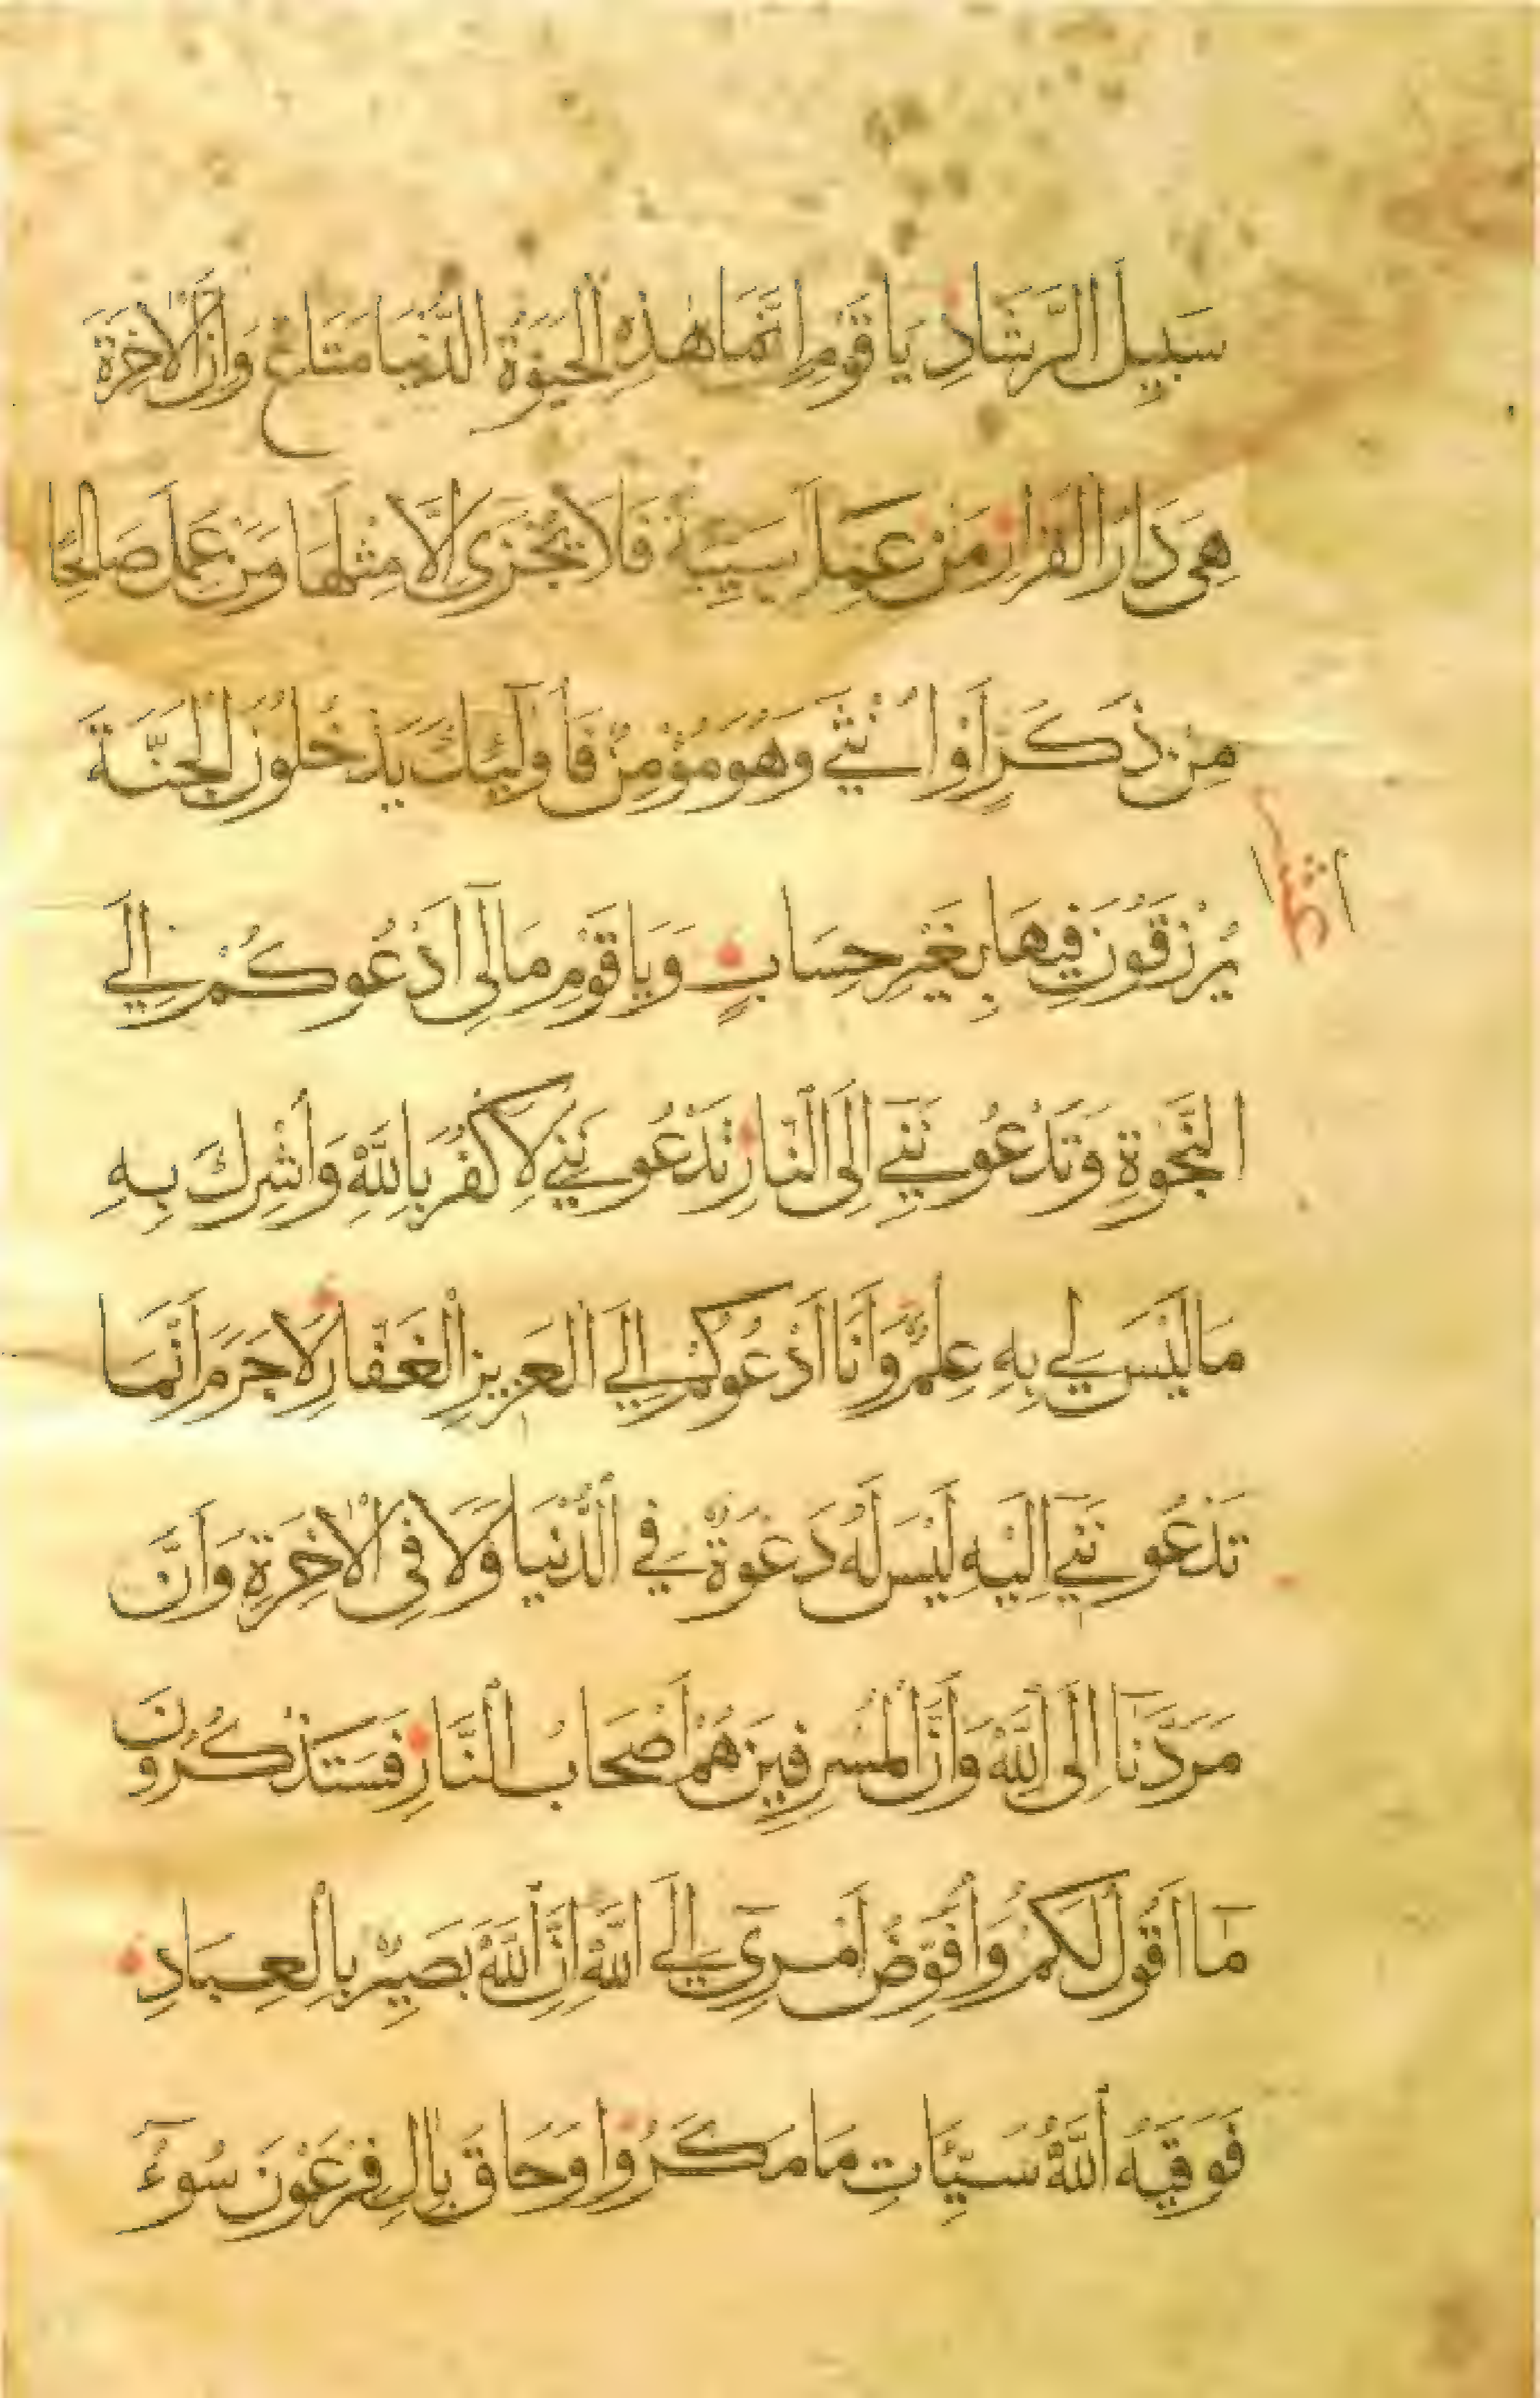 سَبِيلَ الرَّشَادِ يَا قَوْمِ اِنَّمَا هٰذِهِ الْحَيٰوةُ الدُّنْيَا مَتَاعٌ وَاِنَّ الْاٰخِرَةَ
هِىَ دَارُ الْقَرَارِ مَنْ عَمِلَ سَيِّئَةً فَلَا يُجْزَى اِلَّا مِثْلَهَا وَمَنْ عَمِلَ صَالِحًا
مِنْ ذَكَرٍ اَوْ اُنْثَى وَهُوَ مُؤْمِنٌ فَاُولٰٓئِكَ يَدْخُلُونَ الْجَنَّةَ
يُرْزَقُونَ فِيهَا بِغَيْرِ حِسَابٍ وَيَا قَوْمِ مَا لِىٓ اَدْعُوكُمْ اِلَى
النَّجٰوةِ وَتَدْعُونَنِىٓ اِلَى النَّارِ تَدْعُونَنِى لِاَكْفُرَ بِاللّٰهِ وَاُشْرِكَ بِهِ
مَا لَيْسَ لِى بِهِ عِلْمٌ وَاَنَا اَدْعُوكُمْ اِلَى الْعَزِيزِ الْغَفَّارِ لَا جَرَمَ اَنَّمَا
تَدْعُونَنِىٓ اِلَيْهِ لَيْسَ لَهُ دَعْوَةٌ فِى الدُّنْيَا وَلَا فِى الْاٰخِرَةِ وَاَنَّ
مَرَدَّنَآ اِلَى اللّٰهِ وَاَنَّ الْمُسْرِفِينَ هُمْ اَصْحَابُ النَّارِ فَسَتَذْكُرُونَ
مَآ اَقُولُ لَكُمْ وَاُفَوِّضُ اَمْرِىٓ اِلَى اللّٰهِ اِنَّ اللّٰهَ بَصِيرٌ بِالْعِبَادِ
فَوَقٰيهُ اللّٰهُ سَيِّئَاتِ مَا مَكَرُوا وَحَاقَ بِاٰلِ فِرْعَوْنَ سُوٓءُ